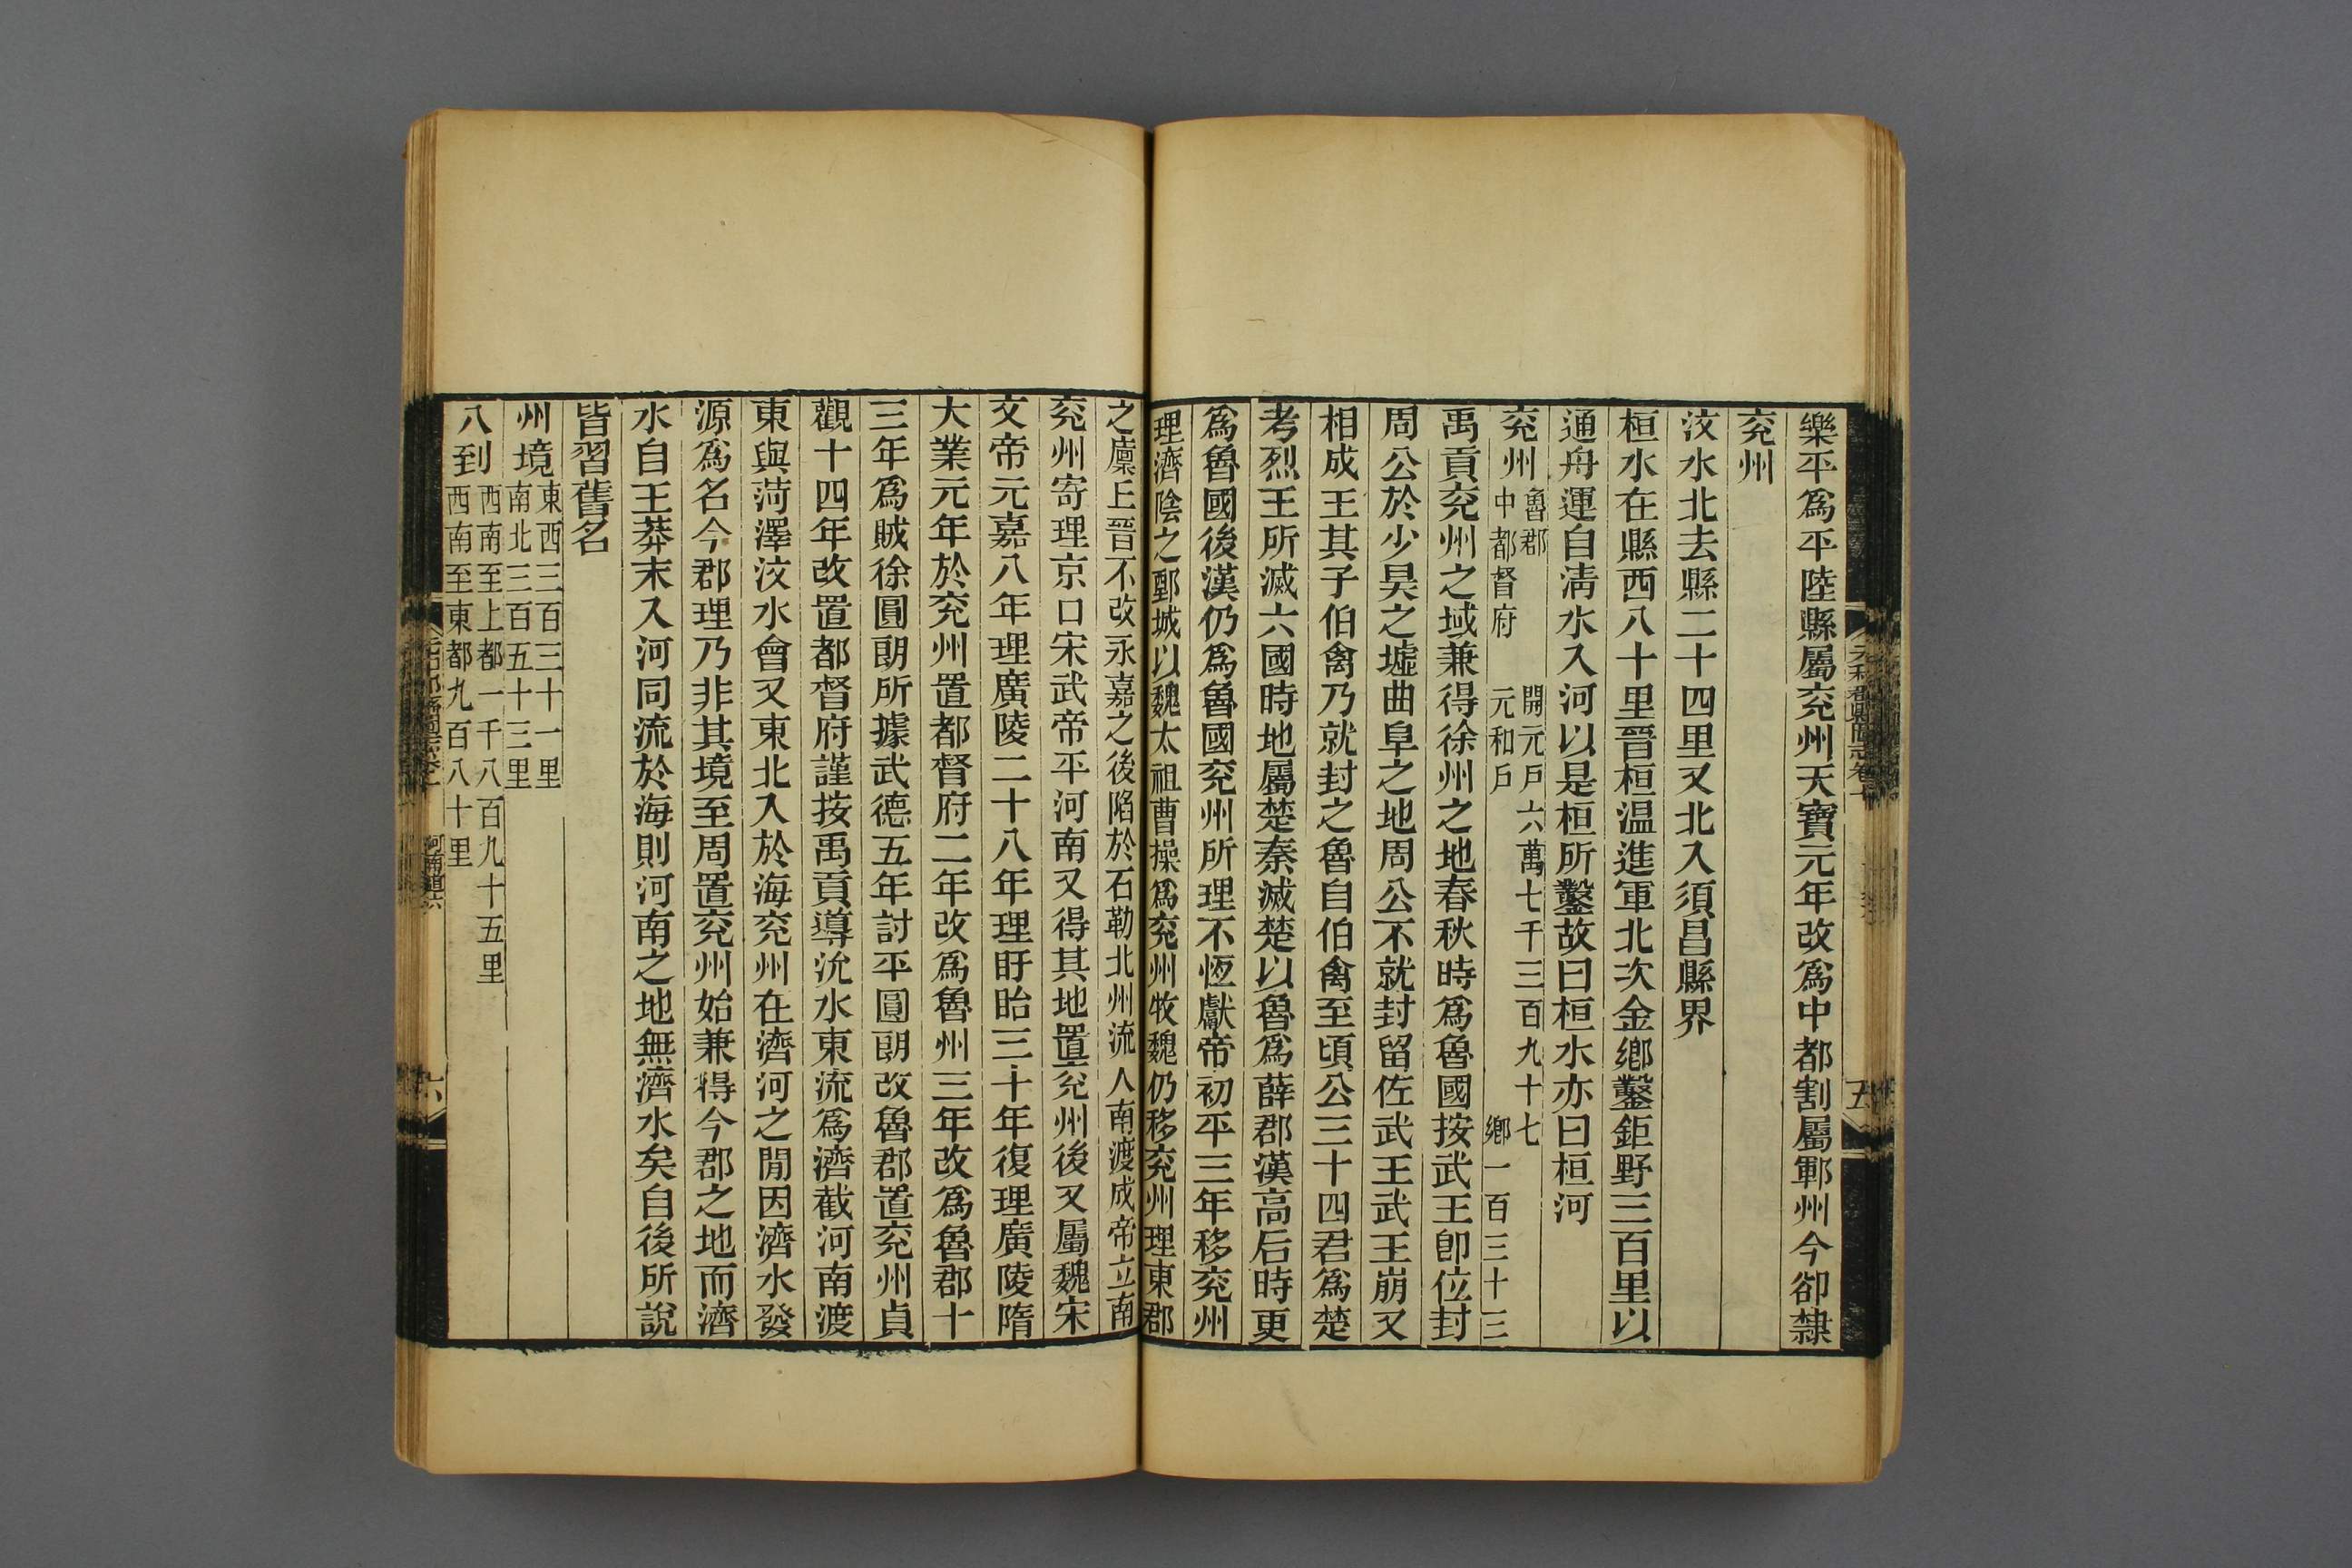 樂平爲平陸縣屬兖州天寶元年改爲中都割屬鄆州今卻隸
兖州
汶水北去縣二十四里又北入須昌縣界
桓水在縣西八十里晉桓温進軍北次金鄉鑿鉅野三百里以
通舟運自淸水入河以是桓所鑿故曰桓水亦曰桓河
兖州 魯郡 開元戶六萬七千三百九十七
中都督府 元和戶 鄉一百三十三
禹貢兖州之域兼得徐州之地春秋時爲魯國按武王卽位封
周公於少昊之墟曲阜之地周公不就封留佐武王武王崩又
相成王其子伯禽乃就封之魯自伯禽至頃公三十四君爲楚
考烈王所滅六國時地屬楚秦滅楚以魯爲薛郡漢高后時更
爲魯國後漢仍爲魯國兖州所理不恆獻帝初平三年移兖州
理濟陰之鄄城以魏太祖曹操爲兖州牧魏仍移兖州理東郡
之廩丘晉不改永嘉之後陷於石勒北州流人南渡成帝立南
兖州寄理京口宋武帝平河南又得其地置兖州後又屬魏宋
文帝元嘉八年理廣陵二十八年理盱眙三十年復理廣陵隋
大業元年於兖州置都督府二年改爲魯州三年改爲魯郡十
三年爲賊徐圓朗所據武德五年討平圓朗改魯郡置兖州貞
觀十四年改置都督府謹按禹貢導沇水東流爲濟截河南渡
東與菏澤汶水會又東北入於海兖州在濟河之閒因濟水發
源爲名今郡理乃非其境至周置兖州始兼得今郡之地而濟
水自王莽末入河同流於海則河南之地無濟水矣自後所說
皆習舊名
州境 東西三百三十一里
南北三百五十三里
八到 西南至上都一千八百九十五里
西南至東都九百八十里
元和郡縣圖志卷十
五
河南道六
六